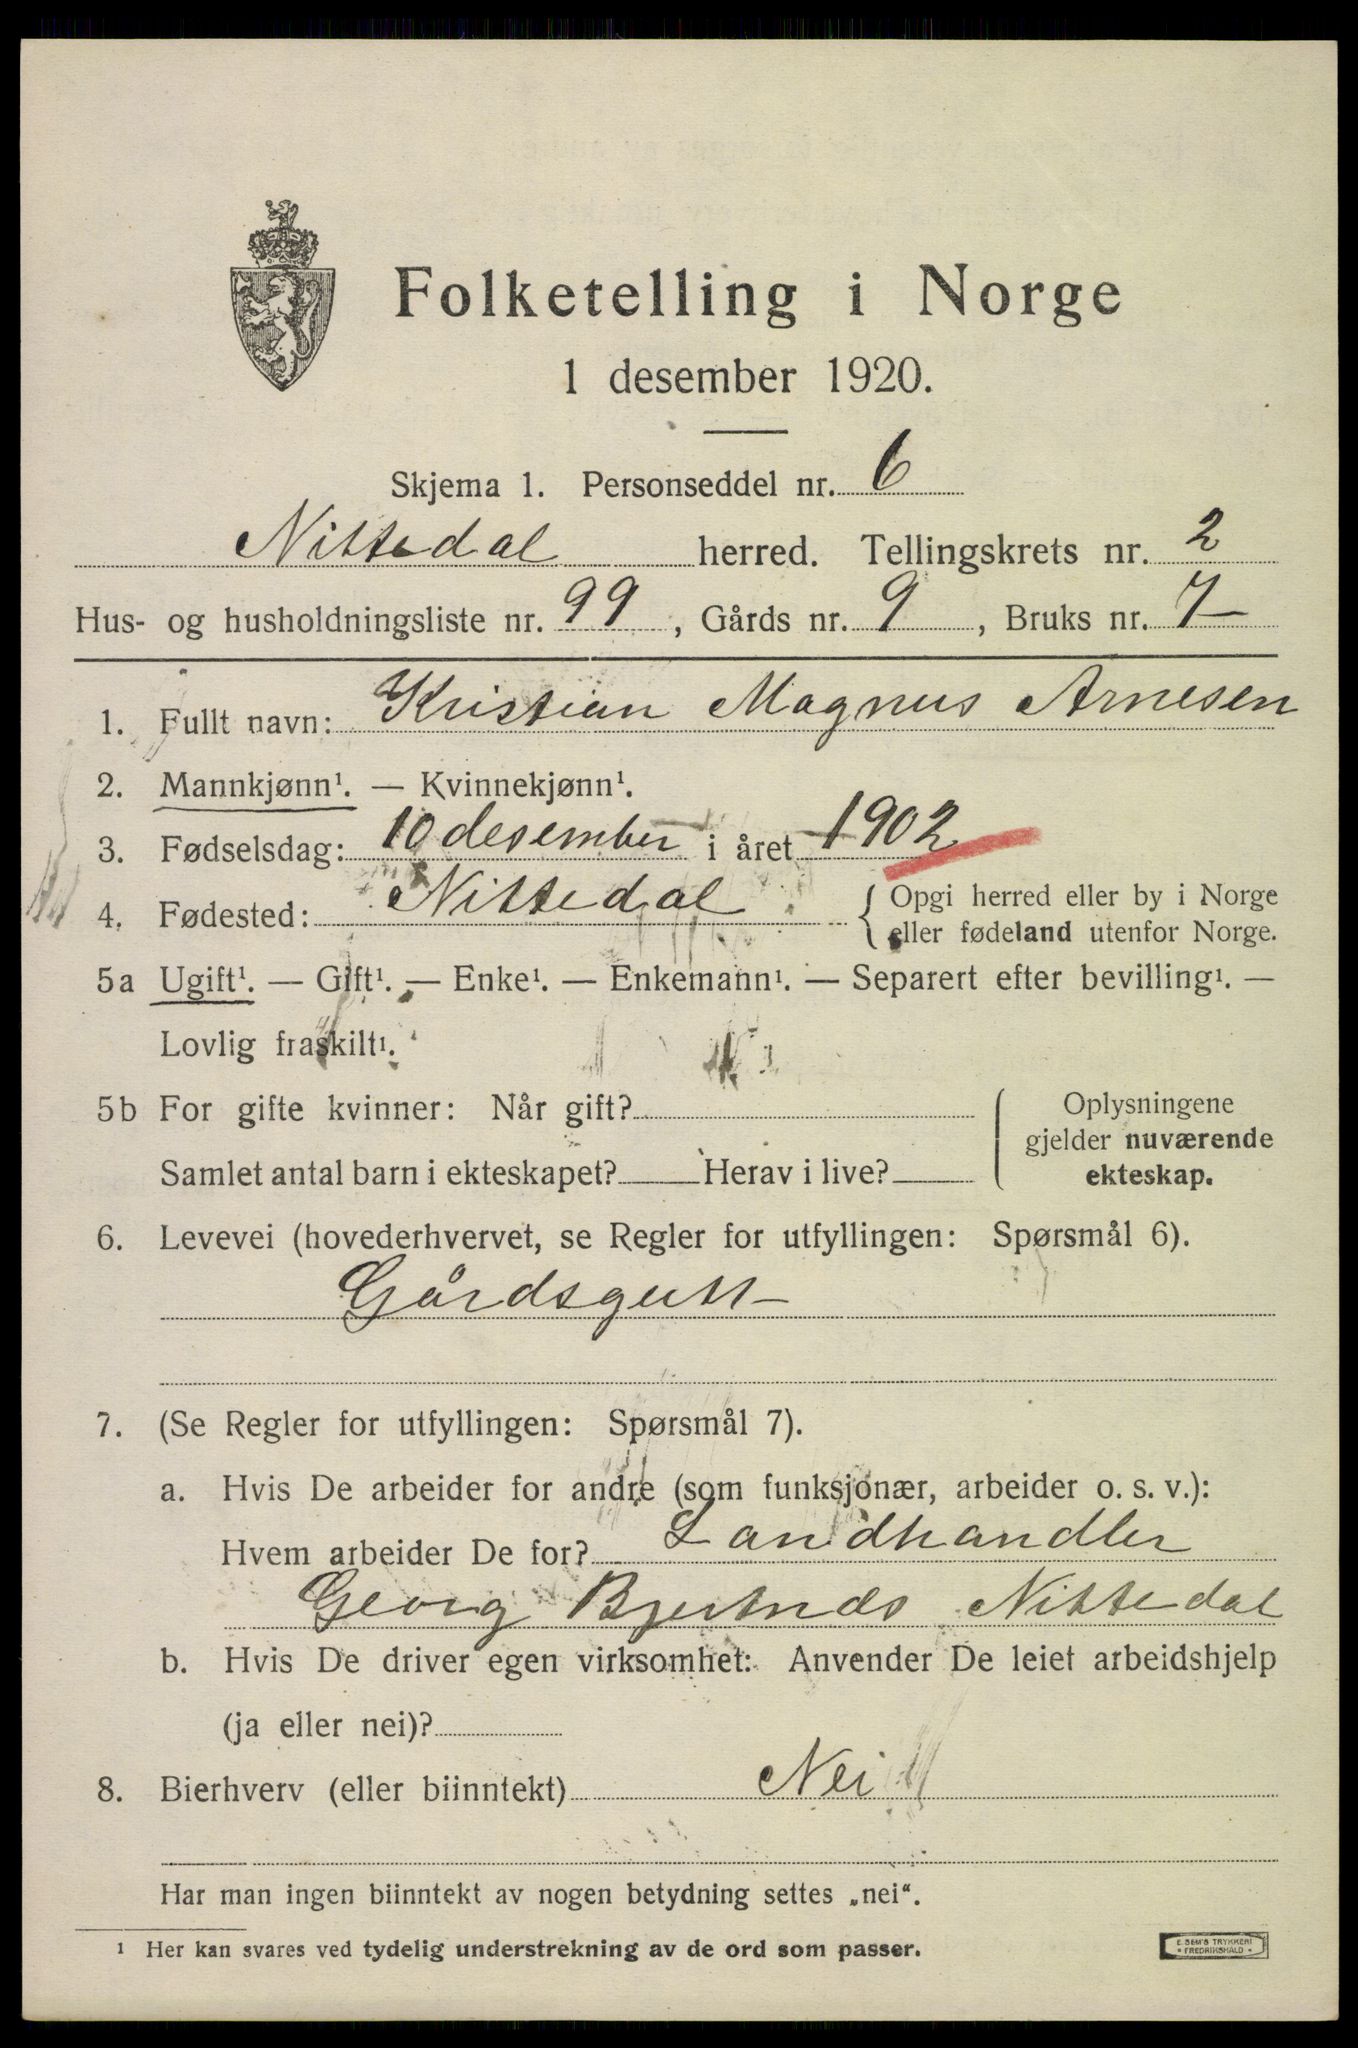 Folketelling i Norge
1 desember 1920.
Skjema 1. Personseddel nr. 6
Nittedal herred. Tellingskrets nr. 2
Hus- og husholdningsliste nr. 99, Gårds nr. 9, Bruks nr. 7
1. Fullt navn: Kristian Magnus Arnesen
2. Mannkjønn¹. — Kvinnekjønn¹.
3. Fødselsdag: 10 desember i året 1902
4. Fødested: Nittedal { Opgi herred eller by i Norge
eller fødeland utenfor Norge.
5a Ugift¹. — Gift¹. — Enke¹. — Enkemann¹. — Separert efter bevilling¹. —
Lovlig fraskilt¹.
5b For gifte kvinner: Når gift?
Samlet antal barn i ekteskapet? Herav i live?
Oplysningene
gjelder nuværende
ekteskap.
6. Levevei (hovederhvervet, se Regler for utfyllingen: Spørsmål 6).
Gårdsgutt
7. (Se Regler for utfyllingen: Spørsmål 7).
a. Hvis De arbeider for andre (som funksjonær, arbeider o. s. v.):
Hvem arbeider De for? Landhandler
Georg Nittedal
b. Hvis De driver egen virksomhet: Anvender De leiet arbeidshjelp
(ja eller nei)?
8. Bierhverv (eller biinntekt) Nei
Har man ingen biinntekt av nogen betydning settes „nei“.
¹ Her kan svares ved tydelig understrekning av de ord som passer.
E. SEM'S TRYKKERI
• FREDRIKSHALD •